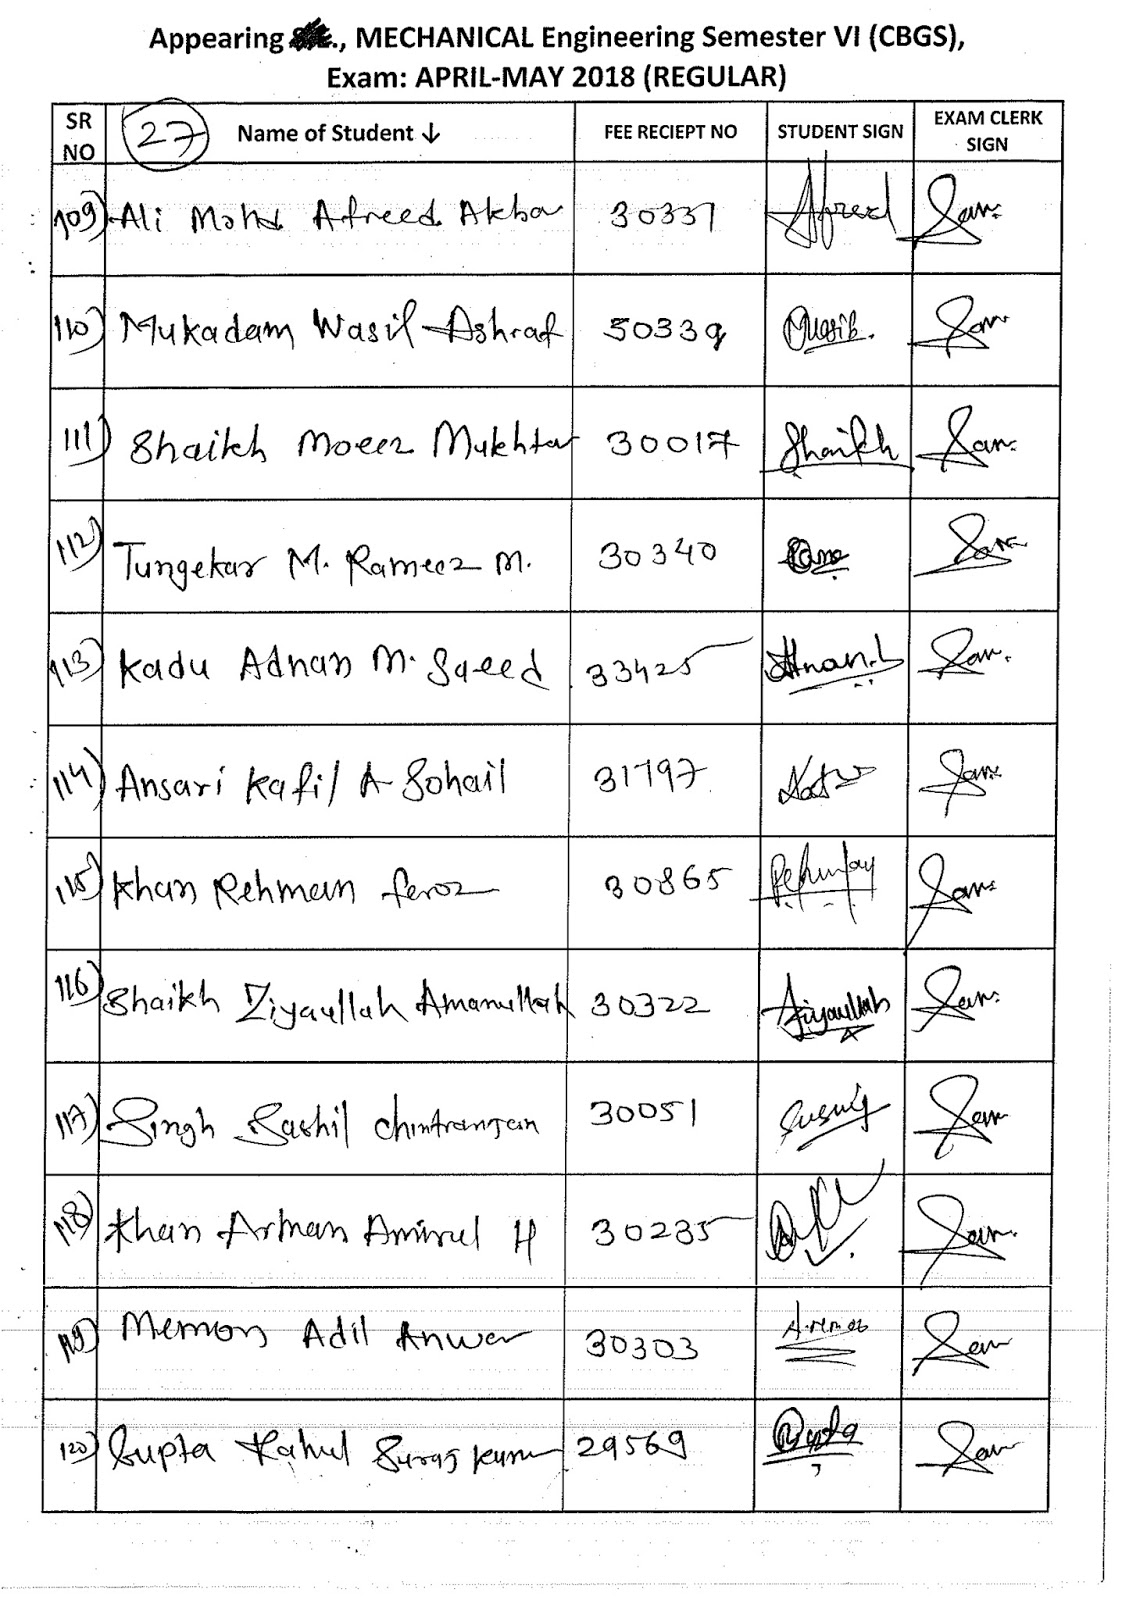 Appearing ., MECHANICAL Engineering Semester VI (CBGS),
Exam: APRIL-MAY 2018 (REGULAR)
SR NO 27 Name of Student ↓ FEE RECIEPT NO STUDENT SIGN EXAM CLERK SIGN
109) Ali Mohd Afreed Akba 30337 Afreed San
110) Mukadam Wasil Ashraf 50339 San
111) Shaikh Moeez Mukhtar 30017 Shaikh San
112) Tungekar M. Rameez M. 30340 San
113) Kadu Adnan M. Saeed 33425 San
114) Ansari Kafil A Sohail 31797 San
115) Khan Rehman feroz 30865 San
116) Shaikh Ziyaullah Amanullah 30322 Ziyaullah San
117) Singh Sushil Chintranjan 30051 San
118) Khan Arman Amirul H 30235 San
119) Memon Adil Anwar 30303 San
120) Gupta Rahul Suraj kum 29569 San